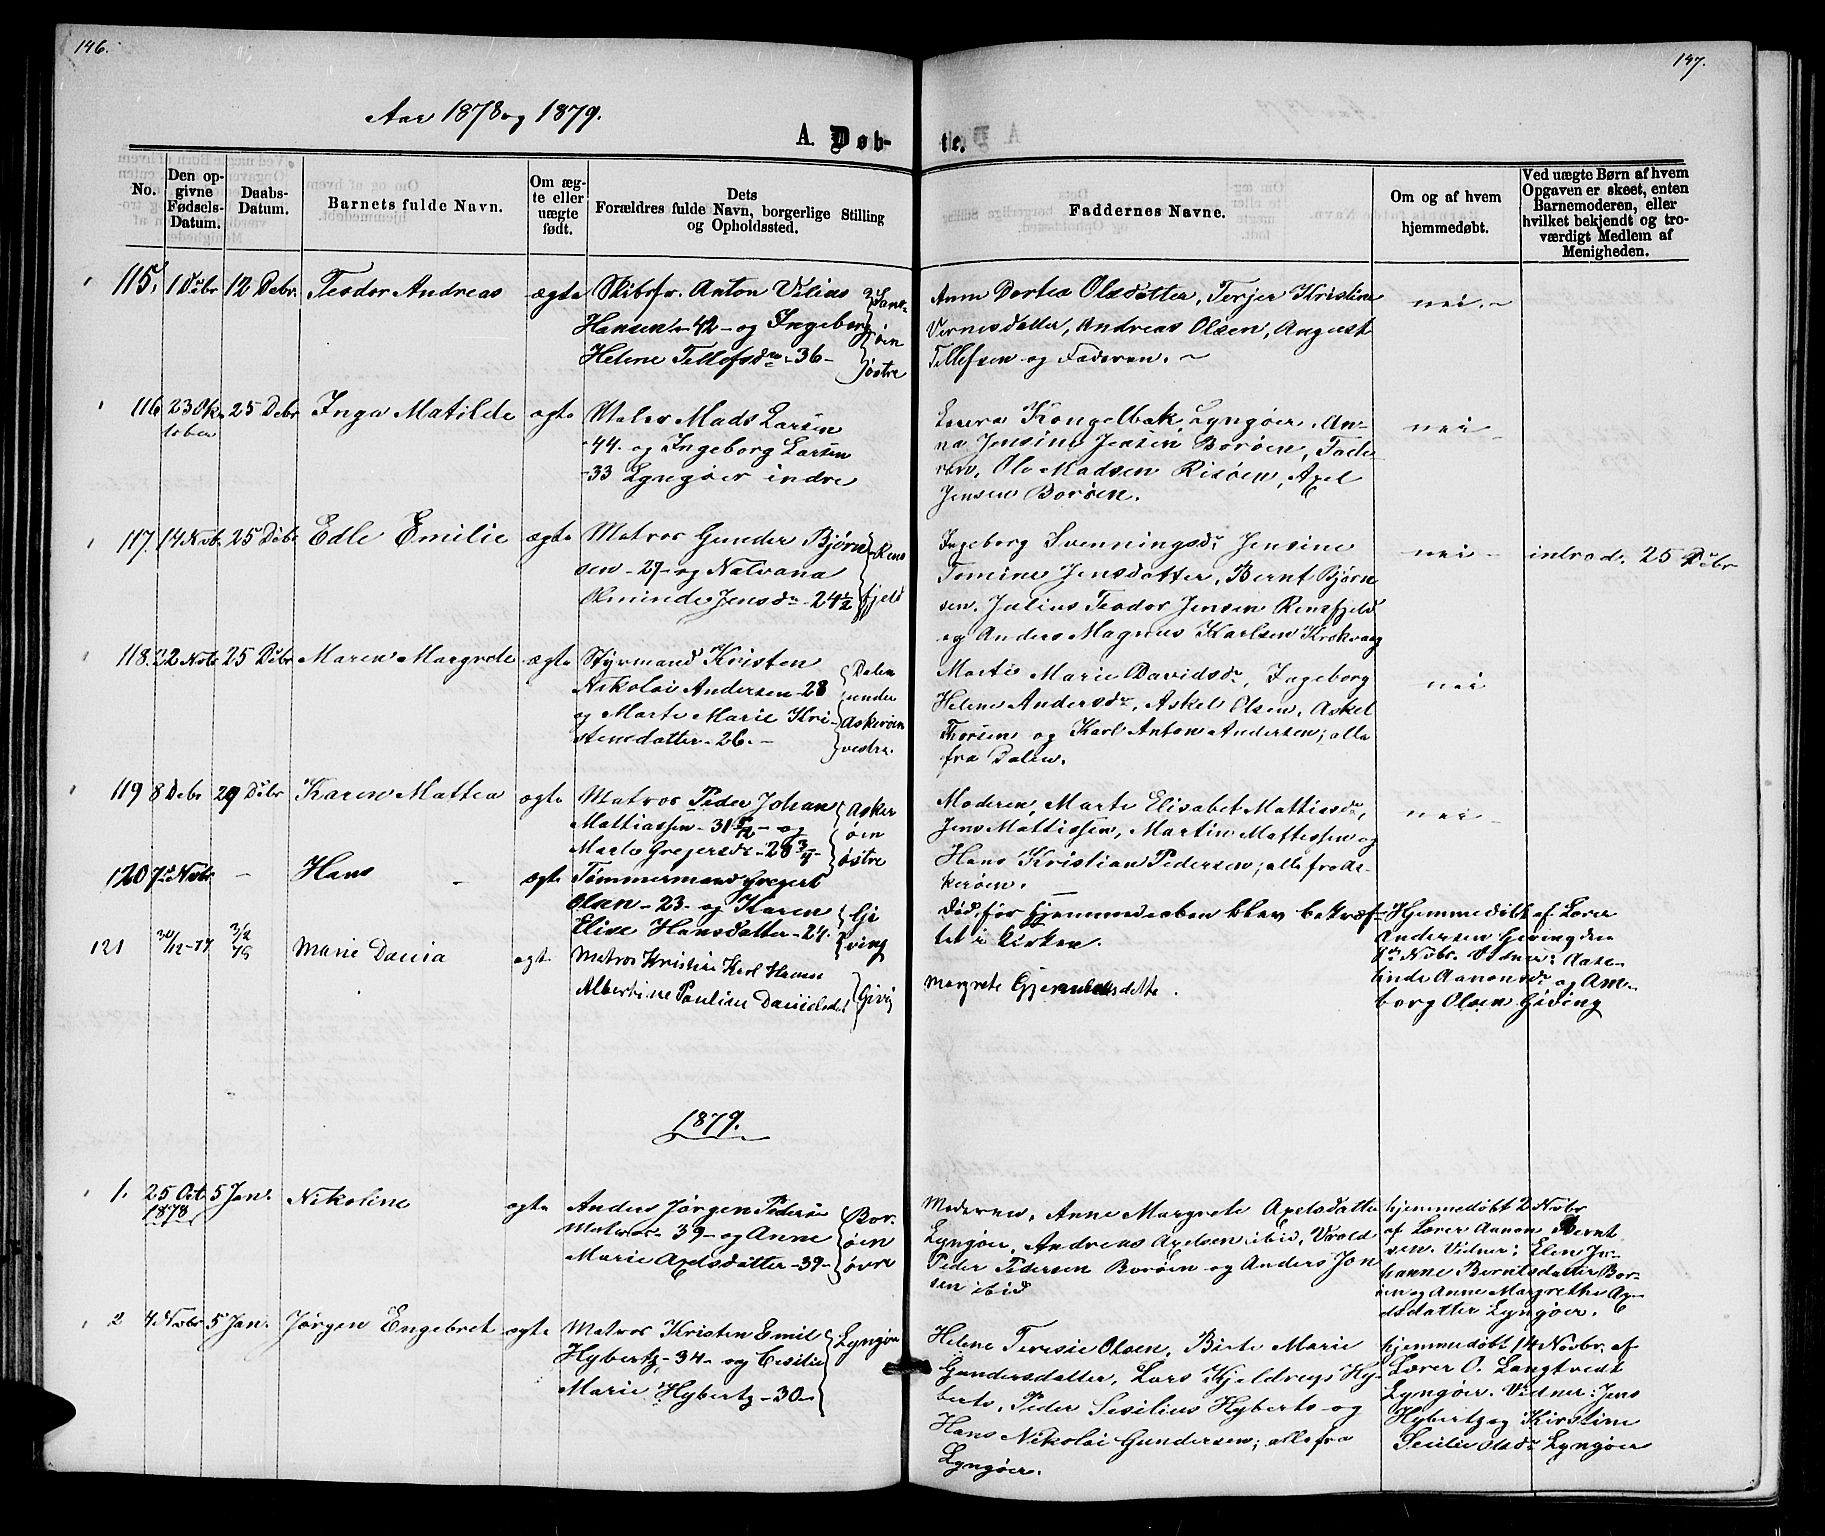 146.
147.
Aar 1878 og 1879.
A. Døb-
te.
No.
Den op-
givne
Fødsels-
Datum.
Daabs-
Datum.
Barnets fulde Navn.
Om æg-
te eller
uægte
født.
Dets
Forældres fulde Navn, borgerlige Stilling
og Opholdssted.
Faddernes Navne.
Om og af hvem
hjemmedøbt.
Ved uægte Børn af hvem
Opgaven er skeet, enten
Barnemoderen, eller
hvilket bekjendt og tro-
værdigt Medlem af
Menigheden.
115. 1 Debr 12 Debr. Teodor Andreas ægte
Skibsfr. Anton Vilius
Hansen - 42 - og Ingeborg
Helene Tellefsdr - 36 -
Sand-
øien
østre
Anne Dortea Olsdatter, Terjer Kristine
Vernesdatter, Andreas Olsen, August
Tellefsen og Faderen.
nei.
116 23 Ok-
tober
25 Debr Inga Matilde ægte
Maler Mads Larsen
44. og Ingeborg Larsen
33 Lyngøer indre
Lovera Kongelbak Lyngøer An-
na Jensine Jensen Borøen, Fade-
ren, Ole Madsen Risøen, Axel
Jensen Borøen.
nei
117. 14 Nob. 25 Debr Edle Emilie ægte
Matros Gunder Bjørn
sen - 27 - og Natvana
Omunde Jensdr - 24½
Rens
fjeld
Ingeborg Svenningsdr Jensine
Tomine Jensdatter, Bernt Bjørn
sen, Julius Teodor Jensen Rensfjeld
og Anders Magnus Karlsen Krokvaag
nei
introd. 25 Debr
118. 22 Nobr 25 Debr Maren Margrete ægte
Styrmand Kristen
Nikolai Andersen - 28
og Marte Marie Kri-
stensdatter - 26. -
Dalen
under
Askerøen
vestre.
Marte Marie Davidsdr, Ingeborg
Helene Andersdr, Askel Olsen, Askel
Thorsen og Karl Anton Andersen; alle
fra Dalen.
nei
119 8 Debr 29 Debr Karen Mattea ægte
Matros Peder Johan
Mattiassen - 31 5/12 - og
Marte Grejersdr - 28 3/4 -
Asker
øen
østre
Moderen Marte Elisabet Mattiasdr,
Jens Mattissen, Martin Mattessen og
Hans Kristian Pedersen; alle fra As-
kerøen.
nei
120 7de Nobr - Hans - ægte
Tømmermand Gregert
Olsen - 23 - og Karen
Elise Hansdatter - 24.
Gje
ving
død, før Hjemmedaaben blev bekræf-
tet i Kirken.
Hjemmedøbt af Lærer
Andersen Gieving den
8de Nobr. Vidner: Aase-
linde Aanonsdr og Am-
borg Olsen Gieving
121 30/12-77 3/2 78 Marie Davia ægt.
Matros Kristine Karl Hansen
Albertine Pauline Danielsdr
Givig
Margrete Gjermundsdatte.
1879.
1. 25 Oct.
1878
5 Jan. Nikoline ægte
Anders Jørgen Pederse
Matros - 39 - og Anne
Marie Axelsdatter - 39 -
Bor-
øen
øvre
Moderen, Anne Margrete Axelsdatter
Lyngøer, Andreas Axelsen ibid, Vrold
Peder Pedersen Borøen og Anders Jon
sen ibid
hjemmedøbt 2 Nobr
af Lærer Aanon Bernt
sen. Vidner: Elen Jo-
hanne Berntsdatter Bor-
øen og Anne Margrethe Ax-
elsdatter Lyngøer.
2 4. Nobr 5 Jan. Jørgen Engebret ægte
Matros Kristen Emil
Hybertz - 34 - og Cesilie
Marie Hybertz - 30 -
Lyngøer
Helene Teresie Olsen, Birte Marie
Gundersdatter, Lars Kjeldvigs Hy-
berts, Peder Sesilius Hyberts og
Hans Nikolai Gundersen; alle fra
Lyngøer.
hjemmedøbt 14 Novbr. af
Lærer O. Langtvedt
Lyngøer. Vidner: Jens
Hybertz og Kirstine
Secilie Olsdr Lyngøer